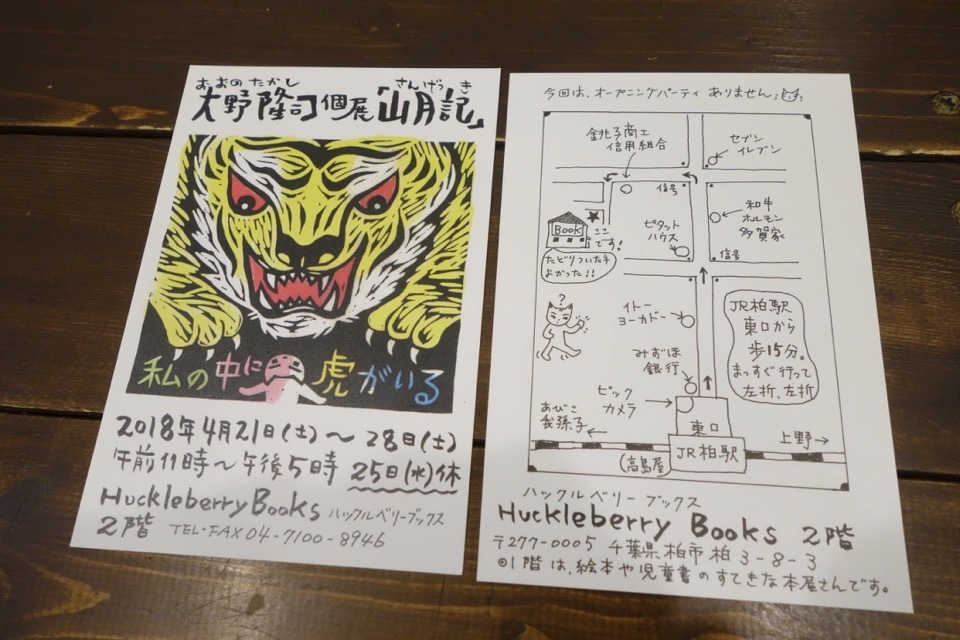 おおの たかし さんげっ き
大野隆司個展「山月記」
私の中に虎がいる
2018年4月21日(土)〜28日(土)
午前11時〜午後5時 25日(水)休
Huckleberry Books ハックルベリーブックス
2階 TEL・FAX 04-7100-8946
今回は、オープニングパーティ ありません。
銚子商工
信用組合
セブン
イレブン
信号
和牛
ホルモン
多賀家
BOOK
ここ
です!
ピタット
ハウス
信号
たどりついたネ
よかった!!
?
イトー
ヨーカドー
JR柏駅
東口から
歩15分。
まっすぐ行って
左折、左折
みずほ
銀行
ビック
カメラ
あびこ
我孫子
東口
上野
高島屋
JR柏駅
ハックルベリー ブックス
Huckleberry Books 2階
〒277-0005 千葉県柏市柏3-8-3
◎1階は、絵本や児童書のすてきな本屋さんです。